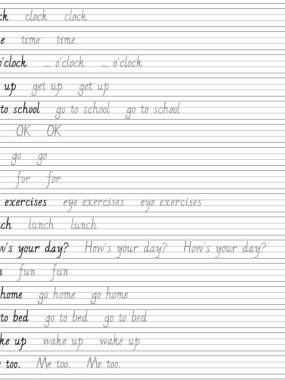 ck clock clock
e time time
o'clock ... o'clock ... o'clock
up get up get up
to school go to school go to school
OK OK
go go
for for
exercises eye exercises eye exercises
ch lunch lunch
w's your day? How's your day? How's your day?
n fun fun
home go home go home
to bed go to bed go to bed
ke up wake up wake up
e too. Me too. Me too.